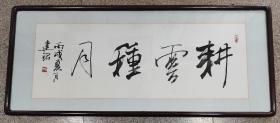 耕雲種月
丙戌夏月